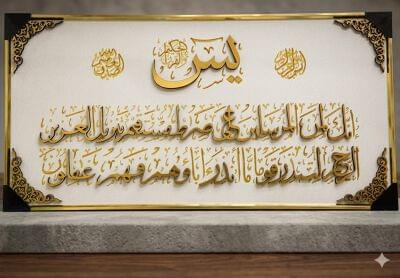 يس
انك لمن المرسلين على صرط مستقيم تنزيل العزيز
الرحيم لتنذر قوما ما انذر اباؤهم فهم غفلون